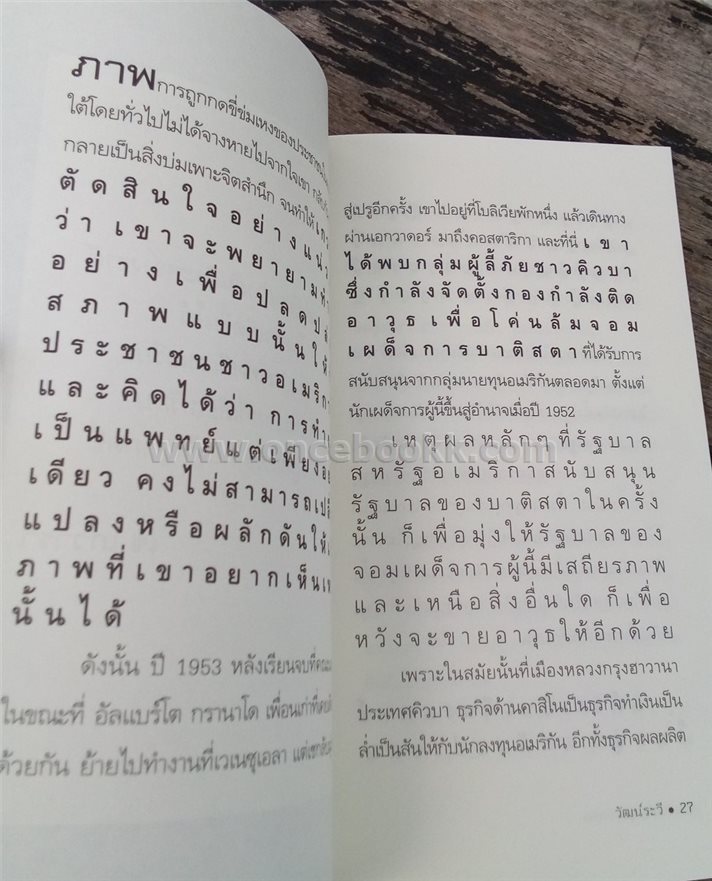 ภาพการถูกกดขี่ข่มเหงของประชาชน
ใต้โดยทั่วไปไม่ได้จางหายไปจากใจเขา
กลายเป็นสิ่งบ่มเพาะจิตสำนึก จนทำให้
ตัดสินใจอย่างแน่ว
ว่าเขาจะพยายาม
อย่างเพื่อปลด
สภาพแบบนั้นให้
ประชาชนชาวอเมริกา
และคิดได้ว่า การทำ
เป็นแพทย์แต่เพียง
เดียว คงไม่สามารถ
แปลงหรือผลักดันให้
ภาพที่เขาอยากเห็น
นั้นได้
ดังนั้น ปี 1953 หลังเรียนจบ
ในขณะที่ อัลแบร์โต กรานาโด เพื่อนเก่า
ด้วยกัน ย้ายไปทำงานที่เวเนซุเอลา
สู่เปรูอีกครั้ง เขาไปอยู่ที่โบลิเวียพักหนึ่ง แล้วเดินทาง
ผ่านเอกวาดอร์ มาถึงคอสตาริกา และที่นี่ เขา
ได้พบกลุ่มผู้ลี้ภัยชาวคิวบา
ซึ่งกำลังจัดตั้งกองกำลังติด
อาวุธ เพื่อโค่นล้มจอม
เผด็จการบาติสตาที่ได้รับการ
สนับสนุนจากกลุ่มนายทุนอเมริกันตลอดมา ตั้งแต่
นักเผด็จการผู้นี้ขึ้นสู่อำนาจเมื่อปี 1952
เหตุผลหลักๆ ที่รัฐบาล
สหรัฐอเมริกาสนับสนุน
รัฐบาลของบาติสตาในครั้ง
นั้น ก็เพื่อมุ่งให้รัฐบาลของ
จอมเผด็จการผู้นี้มีเสถียรภาพ
และเหนือสิ่งอื่นใด ก็เพื่อ
หวังจะขายอาวุธให้อีกด้วย
เพราะในสมัยนั้นที่เมืองหลวงกรุงฮาวานา
ประเทศคิวบา ธุรกิจด้านคาสิโนเป็นธุรกิจทำเงินเป็น
ล่ำเป็นสันให้กับนักลงทุนอเมริกัน อีกทั้งธุรกิจผลผลิต
วัฒน์ระวี • 27
www.oncebookk.com